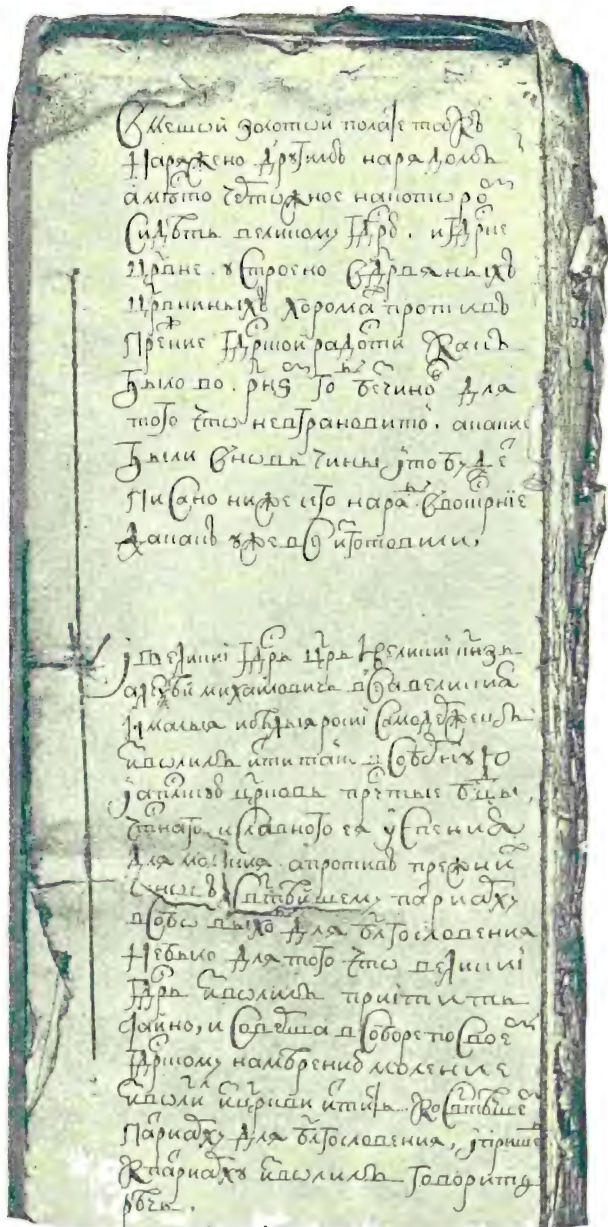 В меншой золотой полате так
наряжено другимъ нарядомъ
а мѣсто чертожное на которо
сидѣть великому гдрю. и гдрне
црвне. устроено в дрвяных
црвниныхъ хорома противъ
прежние гдрской радости какъ
было во. рнѕ го бе чино для
того что не в грановито. а какие
были вновь чины и то буде
писано ниже сего наря. в воскрнïе
а какъ уже все изготовили,
и великиï гдрь црь и великиï кнзь
алеѯѣй михаиловичь всеа великия
и малыя и бѣлыя росиï самодержецъ
изволилъ итти в соборную
и апльскую црковь прчтые бцы,
чтнаго и славного ея успения
для моления. а противъ прежни
святѣишему патриарху
в соборъ выхо для блгословения
не было для того что великиï
гдрь изволилъ приïти
тайно, и соверша в соборе по свое
гдрскому намѣрению моление
изволи и цркви итить ко святѣише
патриарху для блгословения, и прише
к патриарху изволилъ говорить
рѣчь.